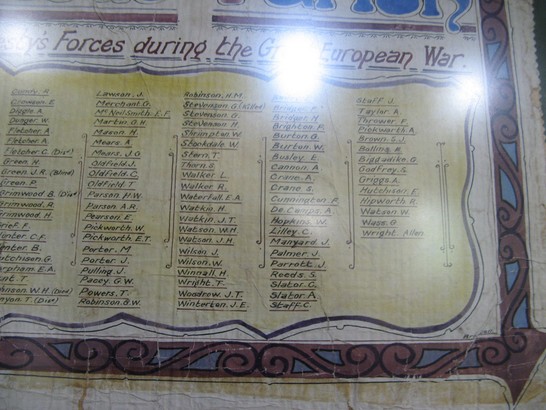 sty's Forces during the Gr European War.
Dowse, E.
Diggle A.
Dugger W.
Fletcher A.
Fletcher A.
Fletcher C. (Died)
Green H.
Green J.R. (Blind)
Green P.
Grimwood B. (Died)
Grimwood, R.
Grimwood H.
Hutchison G.
Johnson W.H. (Died)
Kenyon T. (Died)
Lawson, J.
Merchant G.
Mc Neil Smith. E.F.
Martin G.H
Mason H.
Mears A.
Mears. J.G
Oldfield J.
Oldfield. C.
Oldfield T
Parson H.W.
Parson A.R.
Pearson E.
Pickworth. W.
Pickworth E.T.
Porter. M.
Porter J.
Pulling J.
Pacey G.W.
Powers. T.
Robinson. B.W.
Robinson, H.M.
Stevenson. G (Killed)
Stevenson G.
Stevenson H
Shrimpton W
Stockdale W.
Stern. T
Thorn. E
Walker. L.
Walker R.
Waterfall. E.A
Watkin. H.
Watkin. J.T.
Watson W.H
Watson J.H
Wilson J.
Wilson. W.
Winnall. H
Wright. T.
Woodrow. J.T.
Winterton. J.E.
Bridges H
Brighton. F
Burton G.
Burton. W.
Busley. E.
Cannon A
Crane. A
Crane S.
Cunnington. F
De Camps. A.
Hopkins. W
Lilley. C.
Manyard J.
Palmer J.
Parrott. J.
Reeds. S.
Slator. C.
Slator. A
Staff. C.
Staff J.
Taylor A.
Thrower F
Pickworth. A.
Brown. G.J.
Bolling. H.
Biggadike. G.
Godfrey. S.
Griggs. A
Hutchison. E
Hipworth. R
Watson. W
Wass. G.
Wright Allen